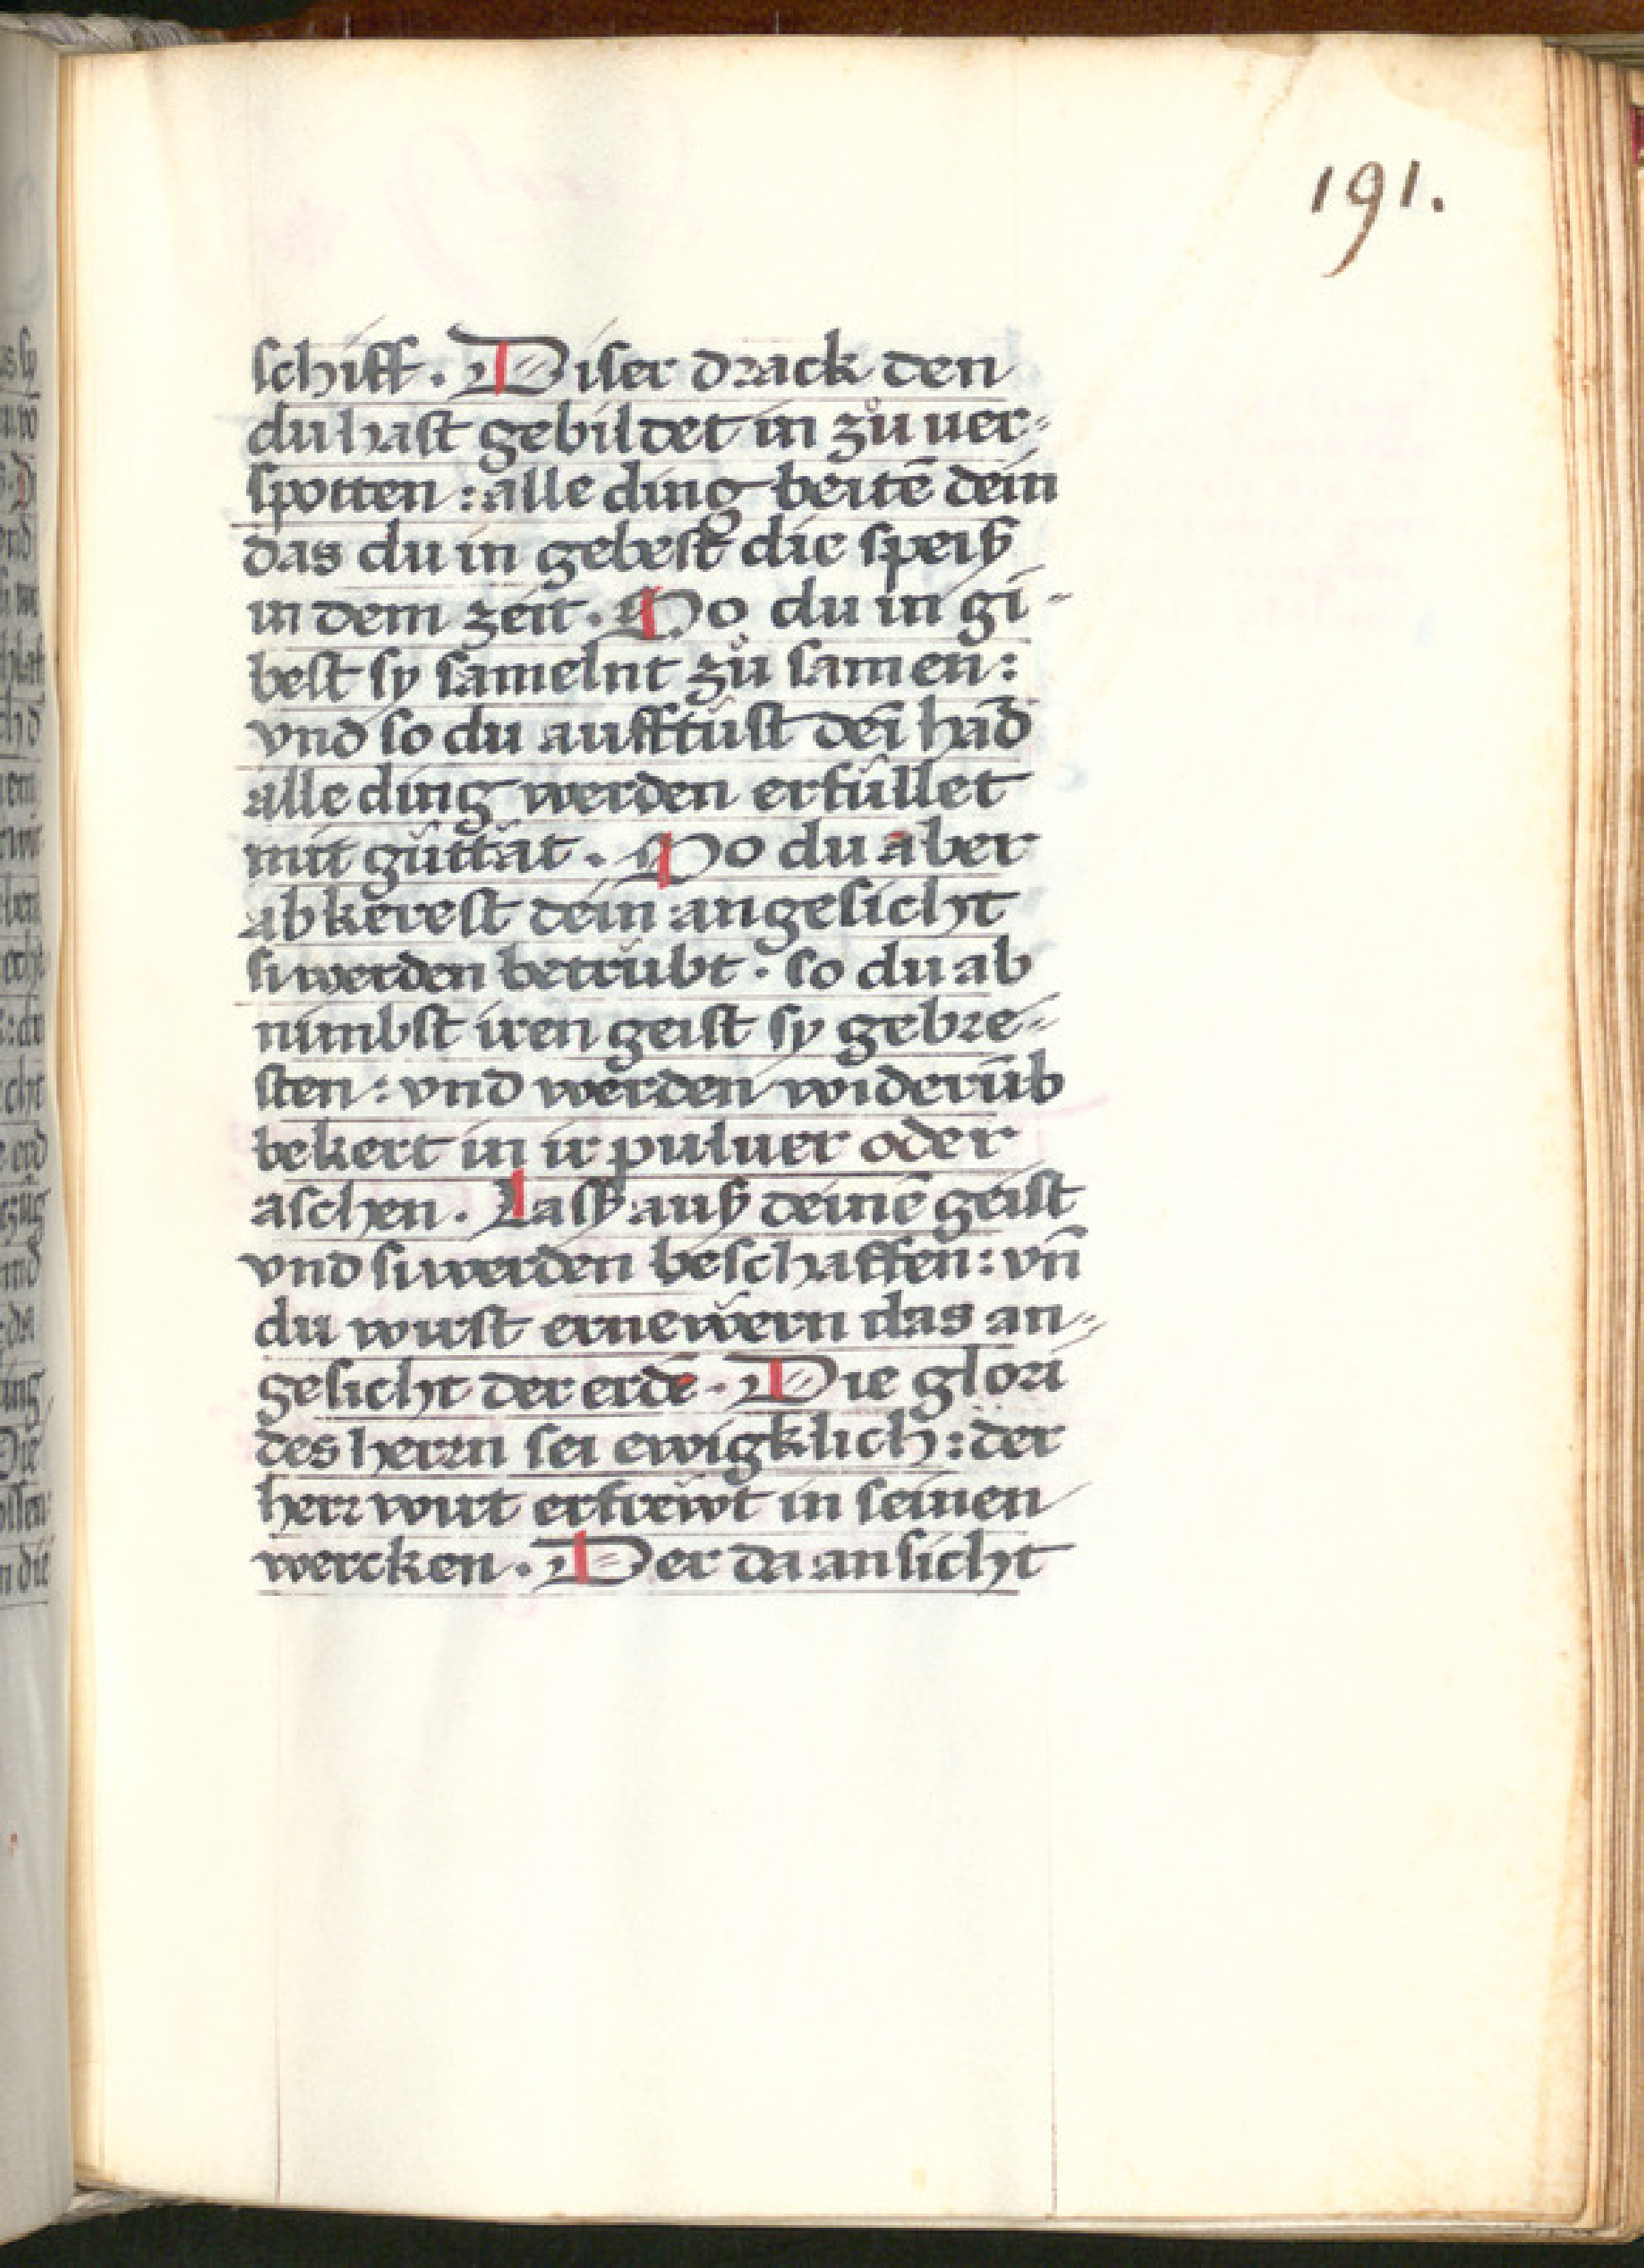 191.
schiff. Diser drack den
du hast gebildet in zů uer-
spotten: alle ding beitē dein
das du in gebest die speiß
in dem zeit. So du in gi-
best sy samelnt zů samen:
vnd so du aufftust dei hād
alle ding werden erfüllet
mit güttät. So du aber
abkerest dein angesicht
si werden betrübt. so du ab
nimbst iren geist sy gebre-
sten: vnd werden widerūb
bekert in ir puluer oder
aschen. Laß auß deinē geist
vnd si werden beschaffen: vn̄
du wirst ernewern das an-
gesicht der erdē. Die glori
des herrn sei ewigklich: der
herr wirt erfrewt in seinen
wercken. Der da ansicht